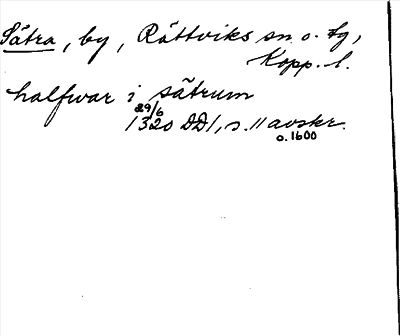 Sätra, by, Rättviks sn. o. tg,
Kopp. l.
halfwar i sätrum
29/6
1320 DD1, s. 11 avskr.
o. 1600